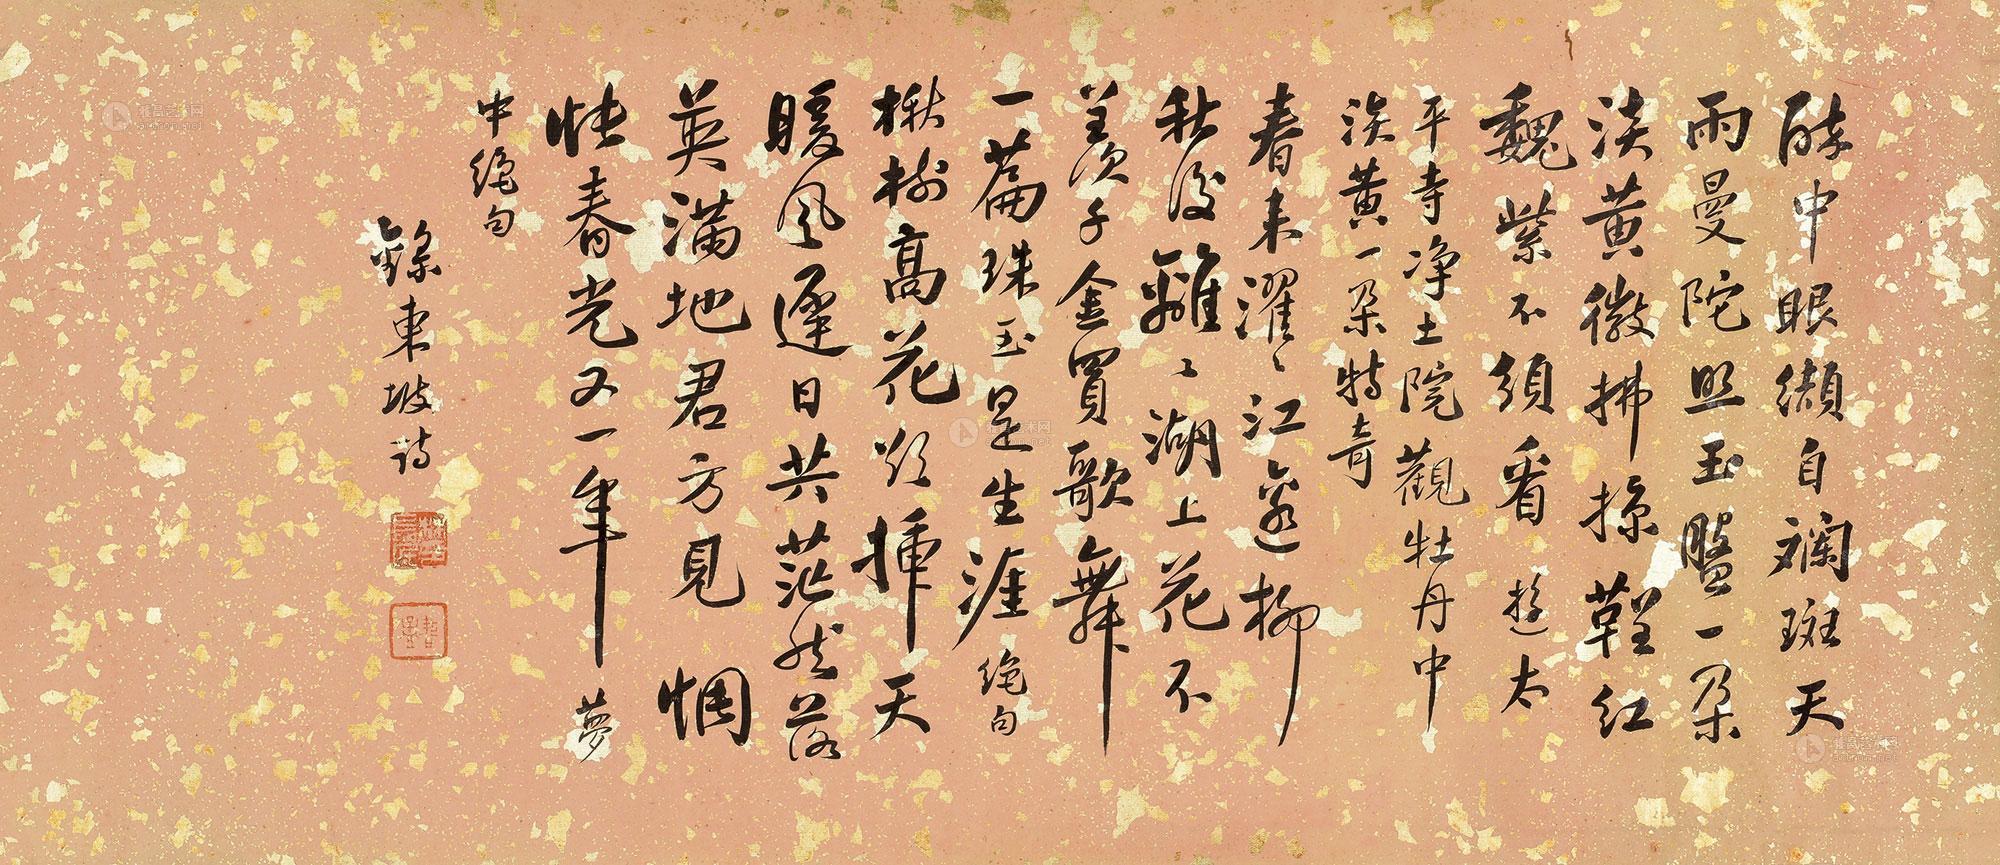 醉中眼纈自斕斑天
雨曼陀照玉盤一朵
淡黄微拂掠鞓紅
魏紫不須看 遊太
平寺净土院觀牡丹中
淡黄一朵特奇
春来濯〻江邊柳
秋後離〻湖上花不
羨千金買歌舞
一篇珠玉是生涯 絶句
楸樹高花欲插天
暖風遲日共茫然落
英滿地君方見惆
悵春光又一年 夢
中絶句
錄東坡詩
雅昌艺术网
artron.net